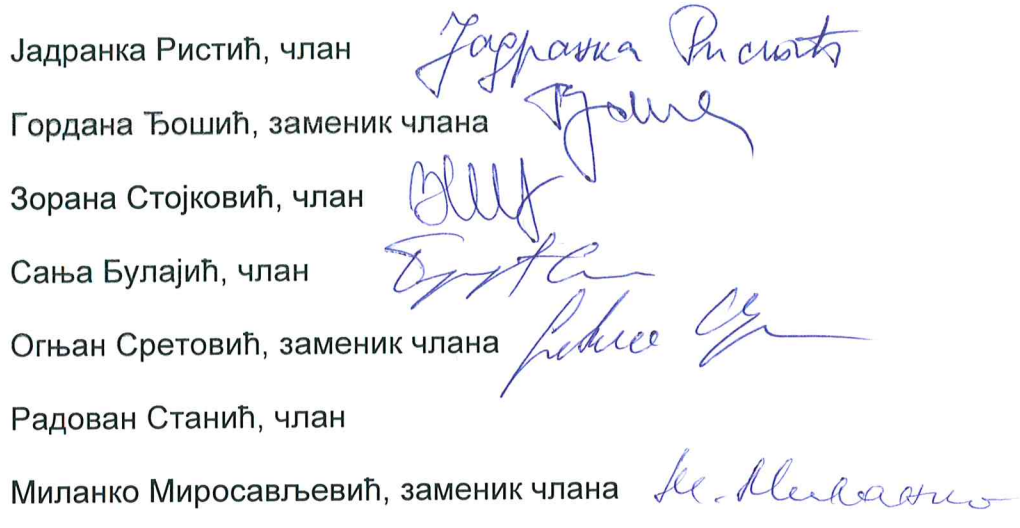 Јадранка Ристић, члан Јадранка Ристић
Гордана Ђошић, заменик члана
Зорана Стојковић, члан
Сања Булајић, члан
Огњан Сретовић, заменик члана
Радован Станић, члан
Миланко Миросављевић, заменик члана М. Миланко